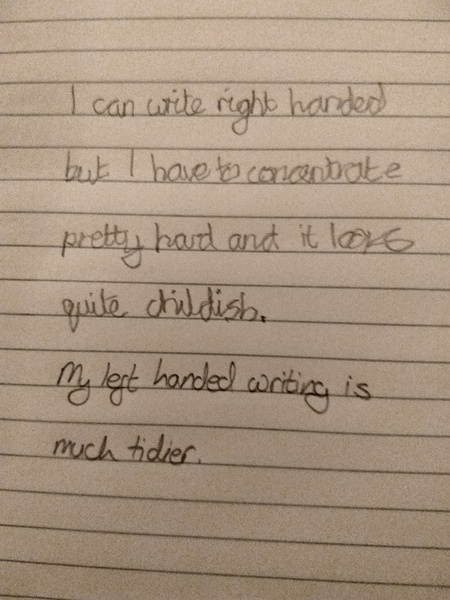 I can write right handed
but I have to concentrate
pretty hard and it looks
quite childish.
My left handed writing is
much tidier.